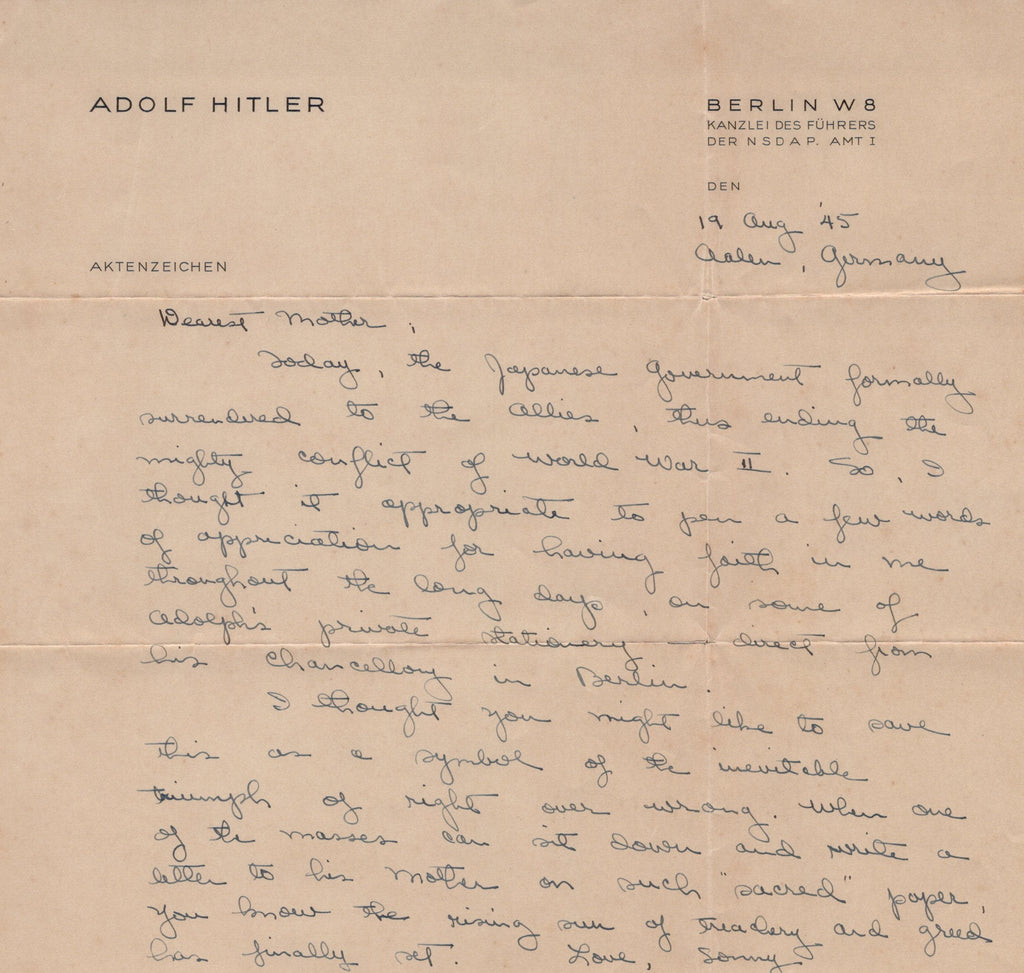 ADOLF HITLER
BERLIN W8
KANZLEI DES FÜHRERS
DER NSDAP. AMT I
DEN
19 Aug '45
Aalen, Germany
AKTENZEICHEN
Dearest Mother;
Today, the Japanese Government formally
surrendered to the Allies, thus ending the
mighty conflict of World War II. So, I
thought it appropriate to pen a few words
of appreciation for having faith in me
throughout the long days, on some of
Adolph's private stationery — direct from
his Chancellory in Berlin.
I thought you might like to save
this as a symbol of the inevitable
triumph of right over wrong. When one
of the masses can sit down and write a
letter to his Mother on such "sacred" paper,
you know the rising sun of treachery and greed
has finally set. Love, Sonny